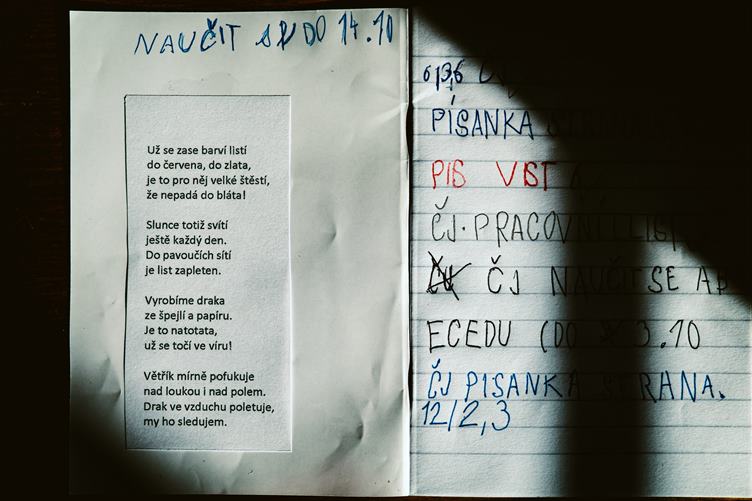 NAUČIT DO 14.10
Už se zase barví listí
do červena, do zlata,
je to pro něj velké štěstí,
že nepadá do bláta!
Slunce totiž svítí
ještě každý den.
Do pavoučích sítí
je list zapleten.
Vyrobíme draka
ze špejlí a papíru.
Je to natotata,
už se točí ve víru!
Větřík mírně pofukuje
nad loukou i nad polem.
Drak ve vzduchu poletuje,
my ho sledujem.
PÍSANKA
PIS VIST
ČJ. PRACOVNÍ LIST
ČJ NAUČIT SE AB
ECEDU (DO 3.10
ČJ PISANKA STRANA.
12/2,3